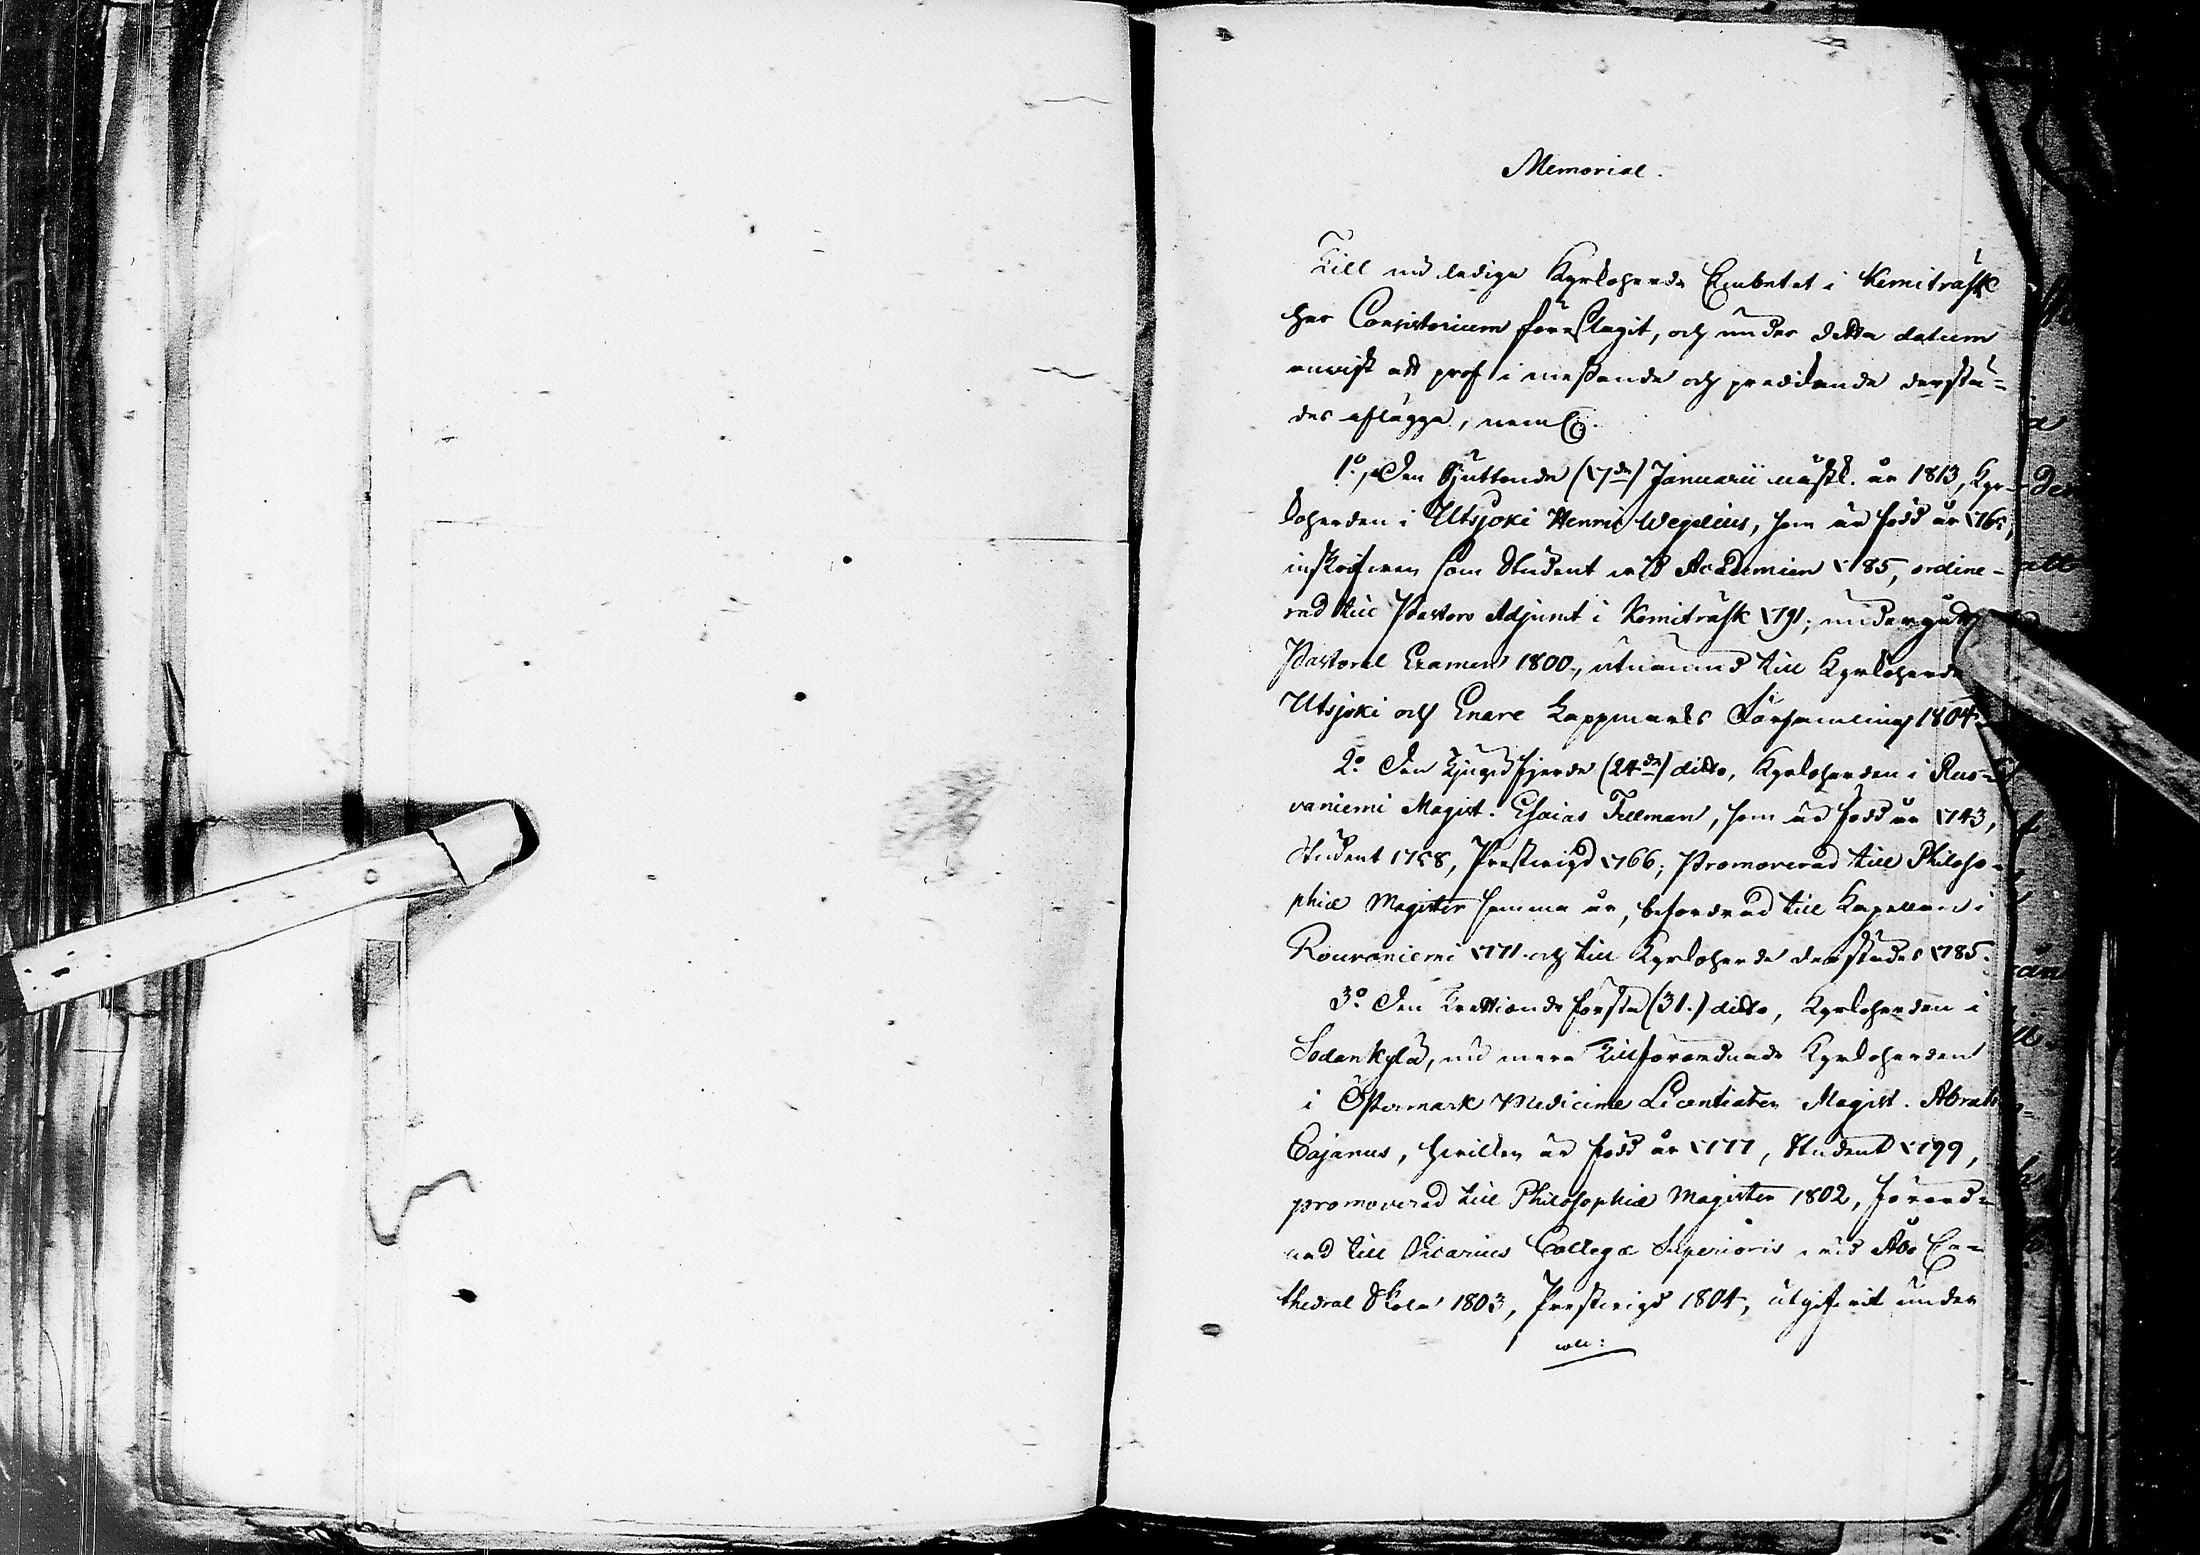 Memorial.
Till nu lediga Kyrkoherde Embetet i Kemiträsk
har Consistorium föreslagit, och under detta datum
anvist att prof i messande och predikande derstä-
des aflägga, neml.
1:o, Den Sjuttonde (17de) Januarii nästk. år 1813, Kyr-
koherden i Utsjoki Henric Wegelius, som är född år
inskrifven som Student vid Academien 1785, ordine-
rad till Pastors Adjunct i Kemiträsk 1791; undergått
Pastoral Examen 1800, utnämnd till Kyrkoherde
Utsjoki och Enare Lappmarks Församling 1804.
2:o Den Tjugufjerde (24de) ditto, Kyrkoherden i Rou-
vaniemi Magist. Esaias Fellman, som är född år 1743,
Student 1758, Prestvigd 1766; Promoverad till Philoso-
phiæ Magister samma år, befordrad till Kapellan i
Rouvaniemi 1771 och till Kyrkoherde derstädes 1785.
3:o Den Trettionde första (31.) ditto, Kyrkoherden i
Sodankylä, nu mera tillförordnade Kyrkoherden
i Östermark Medicine Licentiaten Magist. Abrah.
Cajanus, hvilken är född år 1777, Student 1799,
promoverad till Philosophiæ Magister 1802, förord-
nad till Vicarius Collega Superioris vid Åbo Ca-
thedral Skola 1803, Prestvigd 1804, utgifvit under